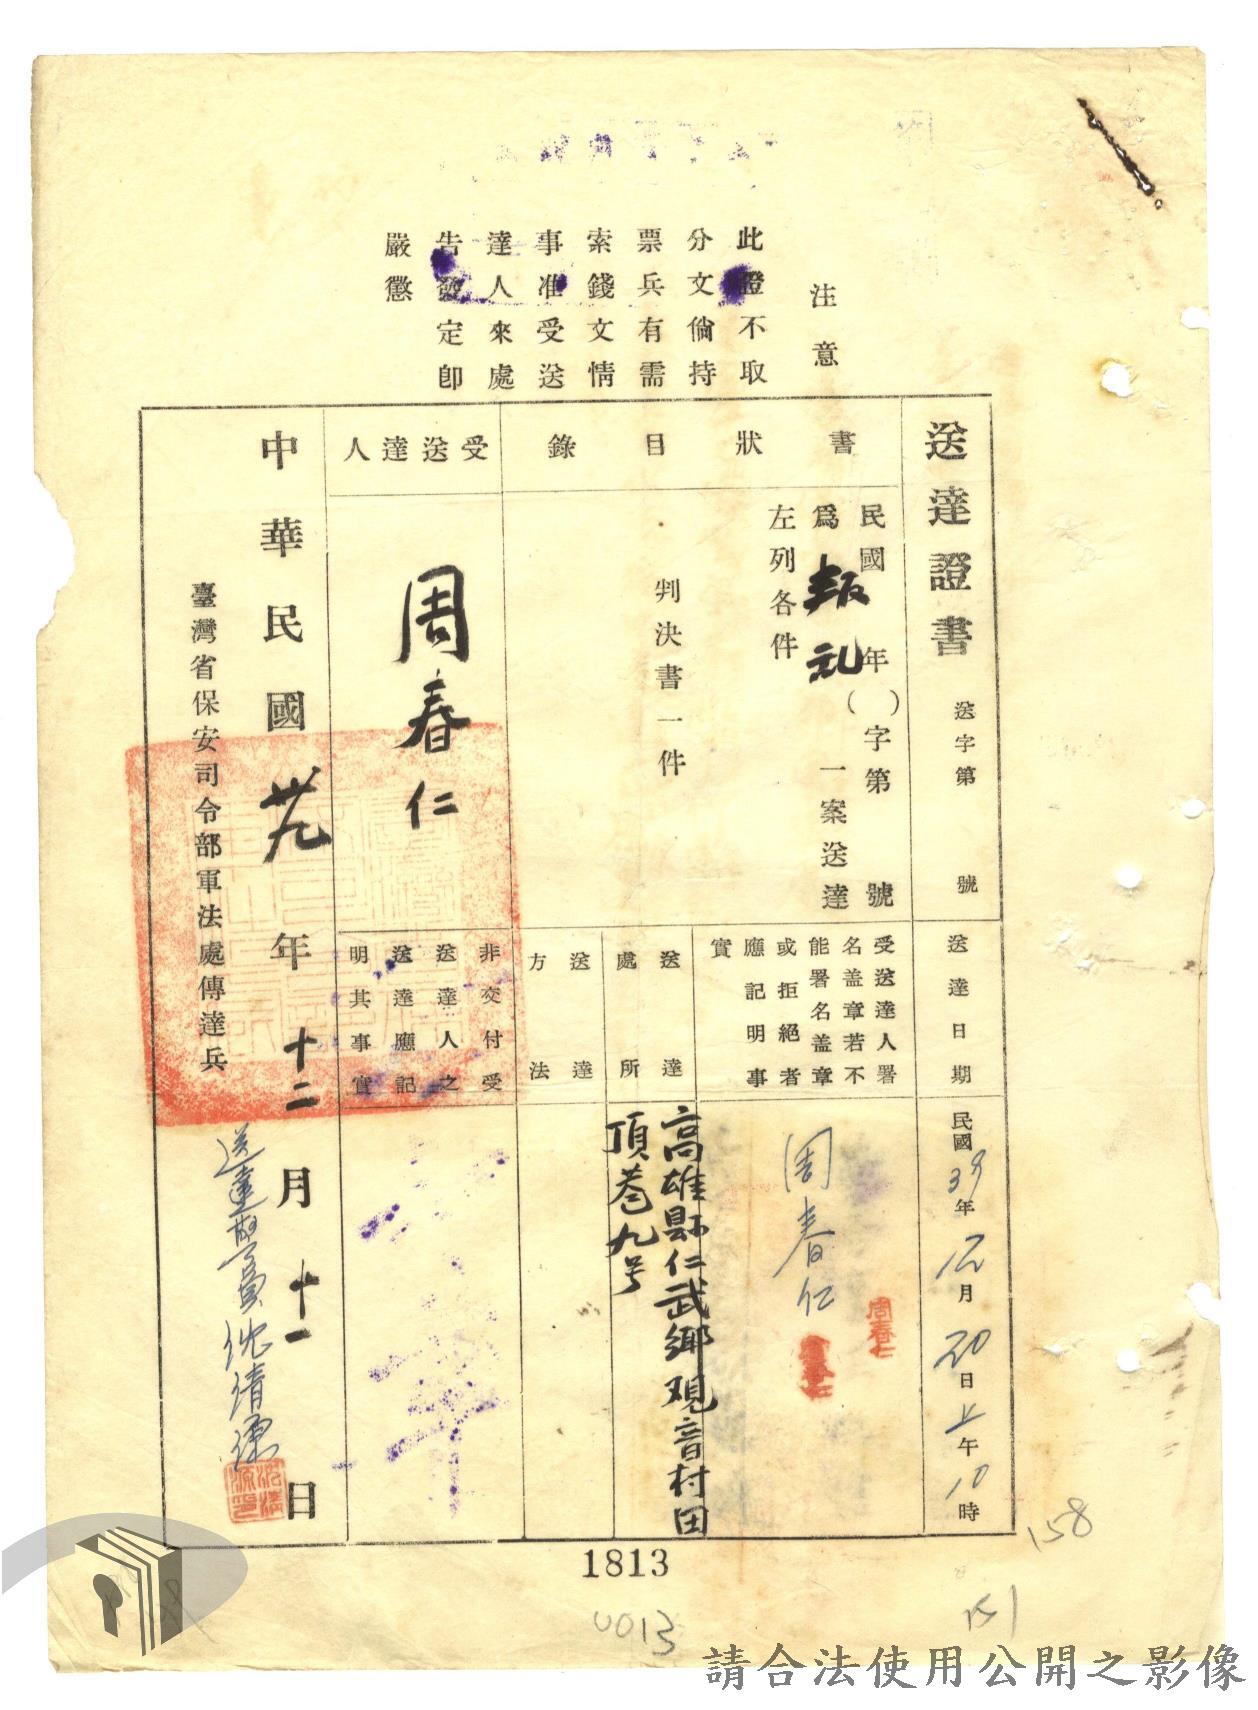 注意
此證不取
分文倘持
票兵有需
索錢文情
事准受送
達人來處
告發定即
嚴懲
送達證書
送字第 號
書狀目錄
民國 年( )字第 號
為叛乱一案送達
左列各件
判決書一件
受送達人
周春仁
中華民國卅九年十二月十一日
臺灣省保安司令部軍法處傳達兵
送達警員沈清源
沈清源印
送達日期
民國39年12月20日上午10時
受送達人署
名蓋章若不
能署名蓋章
或拒絕者
應記明事
實
周春仁
周春仁
送達處所
高雄縣仁武鄉观音村田
頂巷九号
送達方法
非交付受
送達人之
送達應記
明其事實
1813
0013
158
151
請合法使用公開之影像